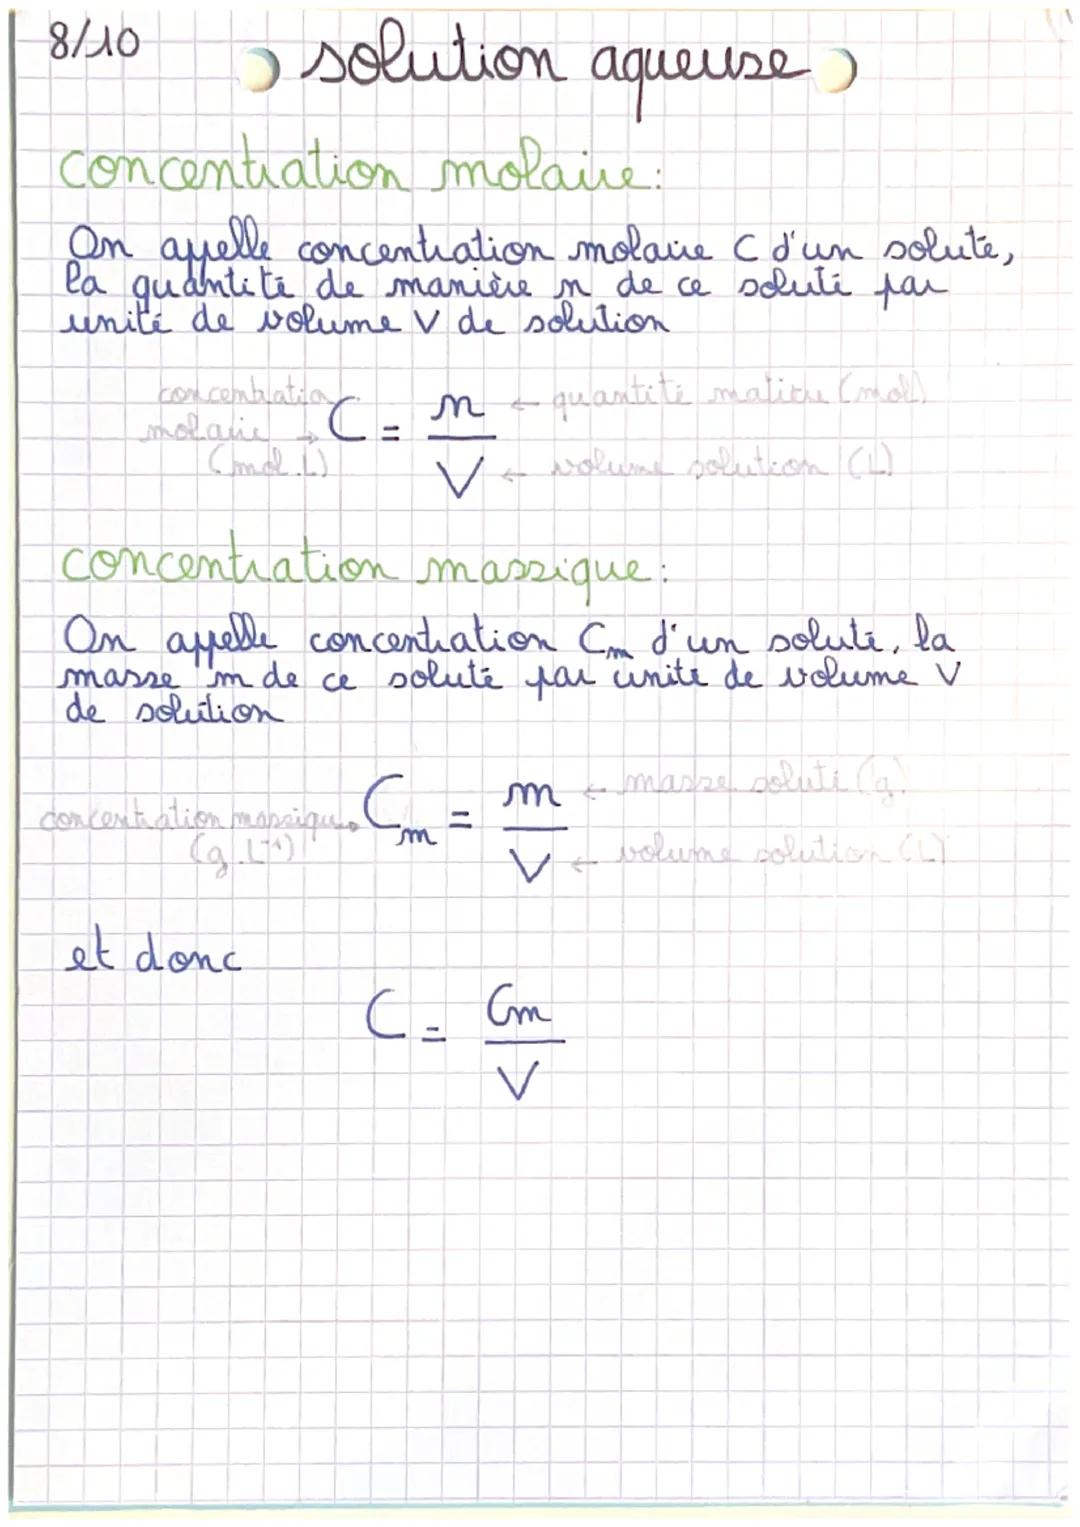 8/10
solution aqueuse
concentration molaire:
On appelle concentration molaire C d'un soluté,
la quantité de manière n de ce soluté par
unité de volume V de solution
concentration
molaire → C = n/V ← quantité matière (mol)
(mol.L) ← volume solution (L)
concentration massique:
On appelle concentration Cm d'un soluté, la
masse m de ce soluté par unité de volume V
de solution
concentration massique → Cm = m/V ← masse soluté (g)
(g.L⁻¹) ← volume solution (L)
et donc
C = Cm/V